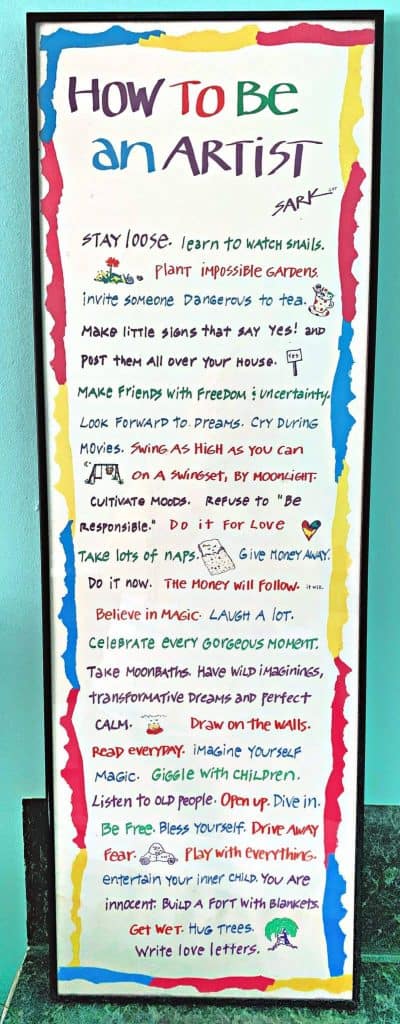 HOW TO BE
an ARTIST
SARK
STAY LOOSE. Learn to WATCH SNAILS.
PLANT IMPOSSIBLE GARDENS.
invite someone DANGEROUS to TEA.
Make little signs that SAY YES! AND
YES
POST them ALL over YOUR HOUSE.
MAKE FRIENDS WITH FREEDOM & UNCERTAINTY.
LOOK FORWARD TO DREAMS. CRY DURING
MOVIES. SWING AS HIGH AS YOU CAN
ON A SWINGSET, BY MOONLIGHT.
CULTIVATE MOODS. REFUSE TO "BE
RESPONSIBLE." DO it FOR LOVE
TAKE LOTS OF NAPS. GIVE MONEY AWAY.
DO IT NOW. THE MONEY WILL FOLLOW. it will.
Believe in MAGIC. LAUGH A LOT.
CELEBRATE EVERY GORGEOUS MOMENT.
TAKE MOONBATHS. HAVE WILD IMAGININGS,
TRANSFORMATIVE DREAMS AND PERFECT
CALM. DRAW ON THE WALLS.
READ EVERYDAY. IMAGINE YOURSELF
MAGIC. GIGGLE WITH CHILDREN.
Listen to OLD PEOPLE. OPEN UP. DIVE IN.
BE FREE. BLESS YOURSELF. DRIVE AWAY
FEAR. PLAY WITH EVERYTHING.
ENTERTAIN YOUR INNER CHILD. YOU ARE
INNOCENT. BUILD A FORT WITH BLANKETS.
GET WET. HUG TREES.
WRITE LOVE LETTERS.